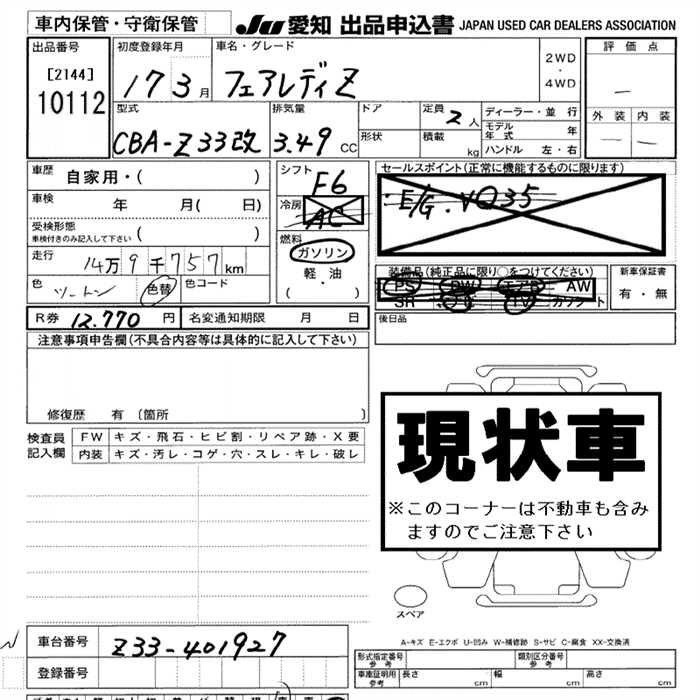 車内保管・守衛保管
JU 愛知 出品申込書 JAPAN USED CAR DEALERS ASSOCIATION
出品番号
[2144]
10112
初度登録年月
17 3 月
車名・グレード
フェアレディZ
2WD
・
4WD
評価点
外装 内装
型式
CBA-Z33改
排気量
3.49 CC
ドア
形状
定員 2 人
積載 kg
ディーラー・並行
モデル年式 年
ハンドル 左・右
車歴 自家用・( )
車検 年 月( 日)
受検形態
車検付きのみ記入して下さい ( )
走行 14万9千757km
色 ツートン 色替 色コード
シフト
F6
冷房
AC
燃料
ガソリン
軽・油
( ・ )
セールスポイント(正常に機能するものに限ります)
E/G.VQ35
装備品(純正品に限り○をつけてください)
PS PW エアB AW
SR ナビ TV カワシート
新車保証書
有・無
R券 12.770 円 名変通知期限 月 日
後日品
注意事項申告欄(不具合内容等は具体的に記入して下さい)
修復歴 有 〔箇所 〕
検査員記入欄
FW キズ・飛石・ヒビ割・リペア跡・X要
内装 キズ・汚レ・コゲ・穴・スレ・キレ・破レ
現状車
※このコーナーは不動車も含み
ますのでご注意下さい
スペア
A-キズ E-エクボ U-凹み W-補修跡 S-サビ C-腐食 XX-交換済
車台番号 Z33-401927
登録番号
形式指定番号 参考
類別区分番号 参考
車庫証明用 参考 長さ cm 幅 cm 高さ cm